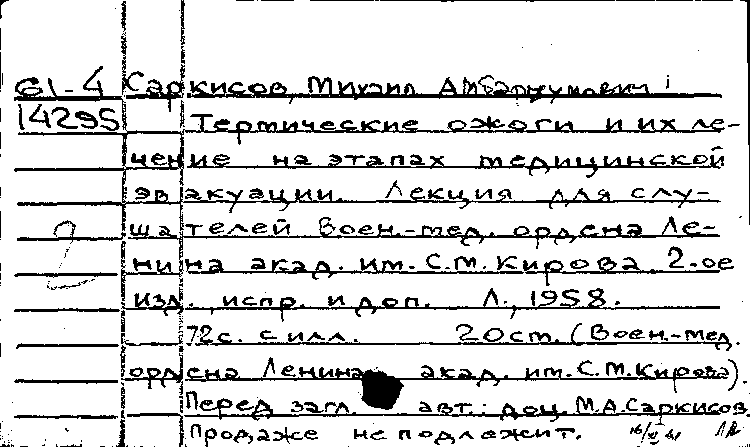 61-4 Саркисов, Михаил
14295 Термические ожоги и их ле-
чение на этапах медицинской
эвакуации. Лекция для слу-
шателей Воен.-мед. ордена Ле-
2 нина акад. им. С.М. Кирова. 2-ое
изд., испр. и доп. Л., 1958.
72с. с илл. 20см. (Воен.-мед.
ордена Ленина акад. им. С.М. Кирова).
Перед загл. авт.: доц. М.А. Саркисов
Продаже не подлежит.